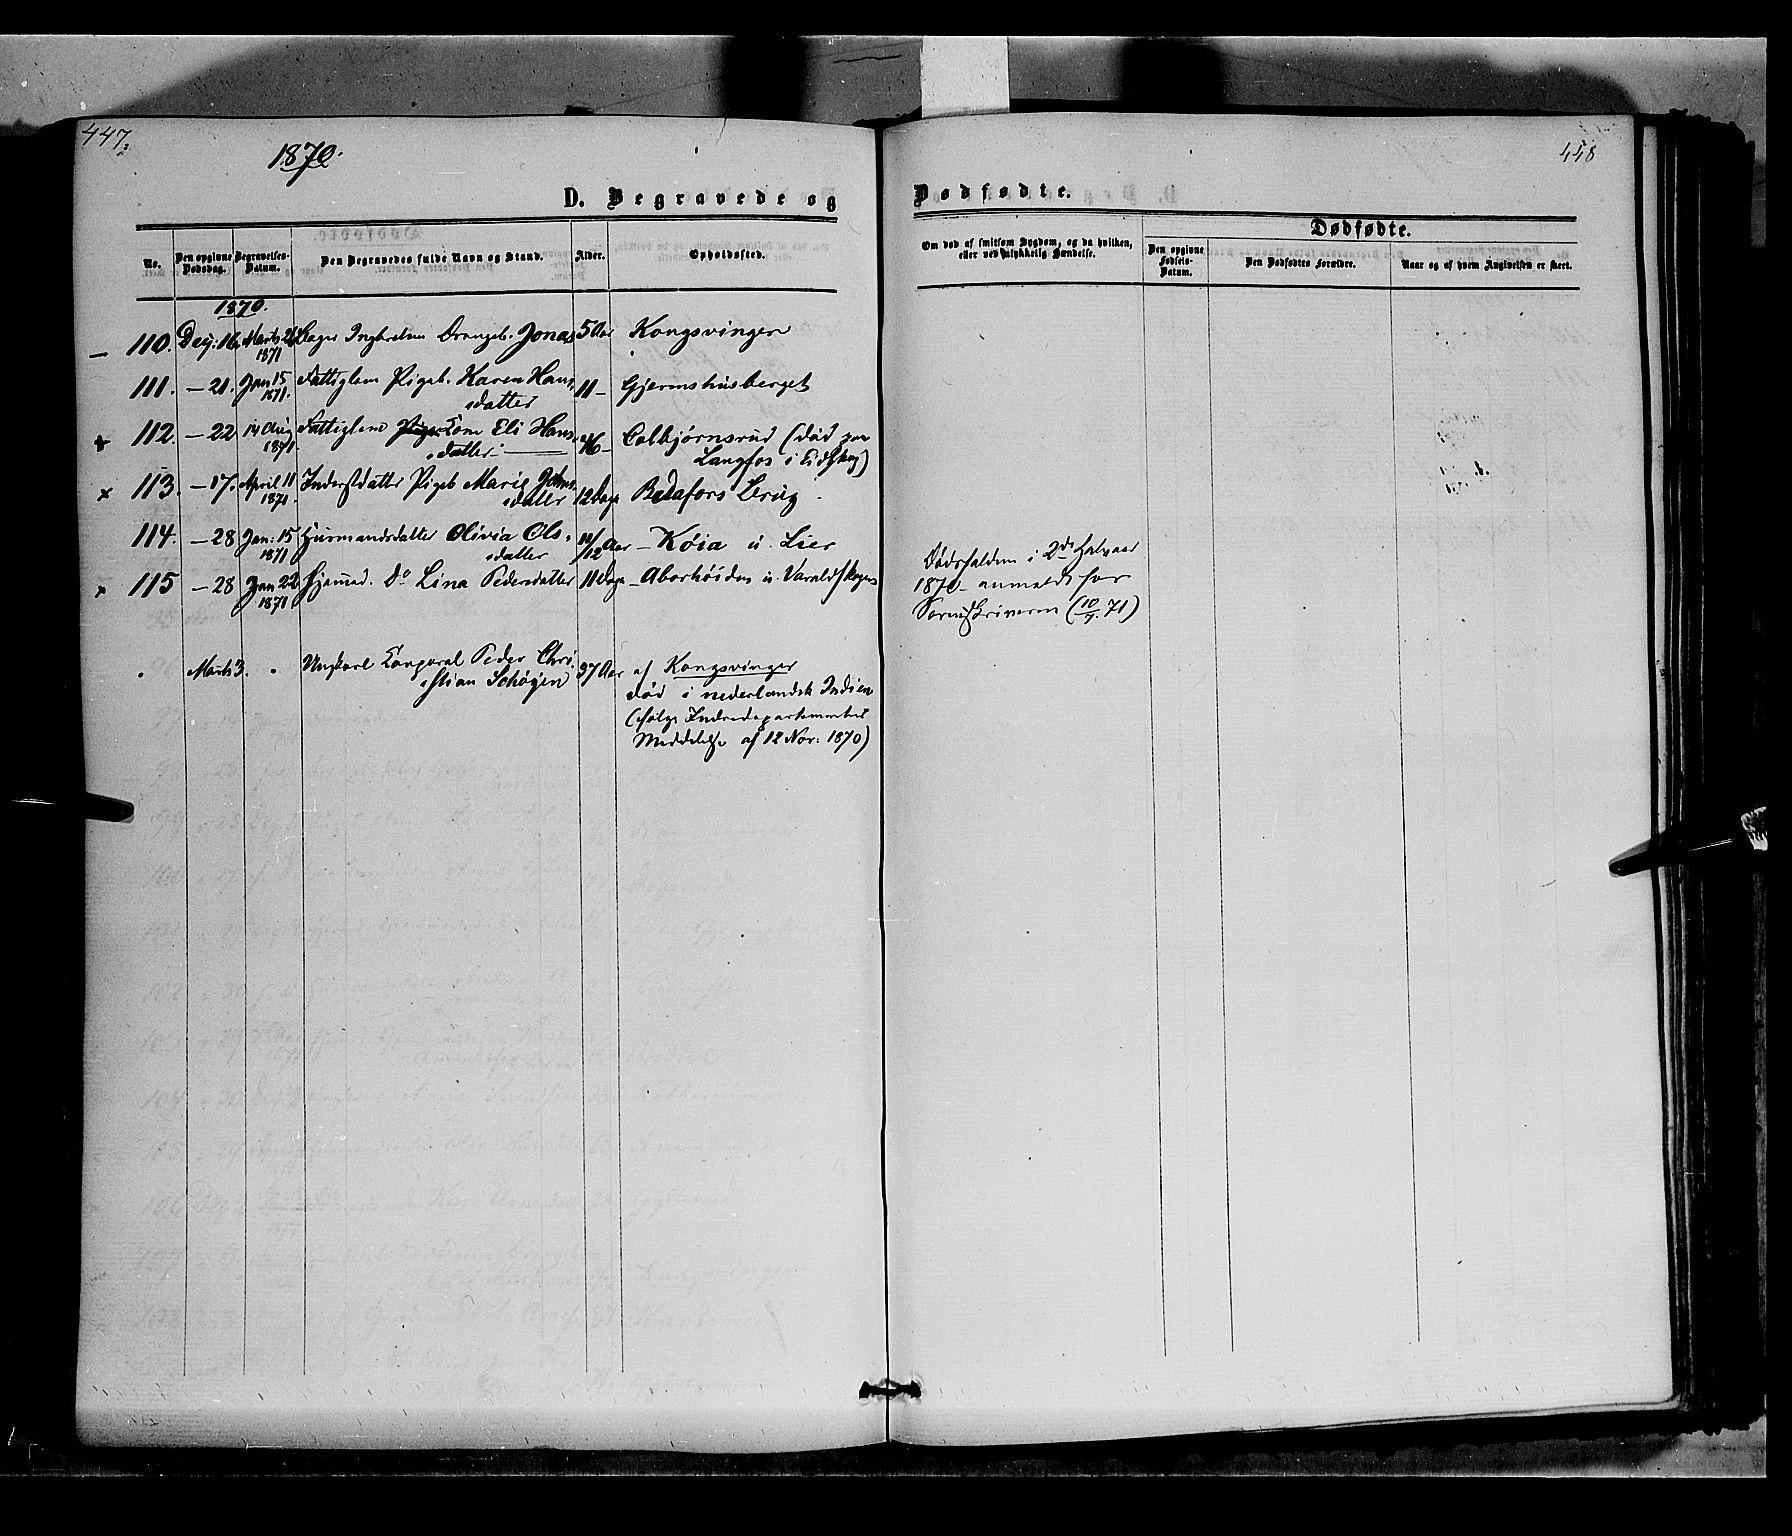 447.
1870.
D. Begravede og
No.
Den opgivne Dødsdag.
Begravelses-Datum.
Den Begravedes fulde Navn og Stand.
Alder.
Opholdssted.
1870.
110. Dec: 16. Marts 1871 Ingbretsen Drengeb. Jonas 5 Aar Kongsvinger
111. — 21. Jan 15 1871. Fattiglem Pigeb. Karen Hans-
datter 11 — Gjermshusberget
112. — 22 14 Aug 1871. Fattiglem Kone Eli Hans-
datter 46 — Colbjørnsrud (død paa
Langfos i Eidskog)
113. — 17. April 11 1871. Inderstdatter Pigeb Marie Johns-
datter 12 Dage
114. — 28 Jan: 15 1871 Huusmandsdatter Olivia Ols-
datter 10/12 Aar — Køia u. Lier
115 — 28 Jan 22 1871 Do Lina Pedersdatter 11 Dage — Aborhöiden u. Varaldskogen
Marts 3. " Ungkarl Corporal Peder Chri-
stian Schøyen 37 Aar af Kongsvinger
død i nederlandsk Indien
(ifølge Indredepartementets
Meddelelse af 12 Nov: 1870)
448
Dødfødte.
Om død af smitsom Sygdom, og da hvilken,
eller ved ulykkelig Hændelse.
Dødfødte.
Den opgivne Fødsels-Datum.
Den Dødfødtes Forældre.
Naar og af hvem Angivelsen er skeet.
Dødsfaldene i 2det Halvaar
1870 anmeldt for
Sorenskriveren (10/1. 71)